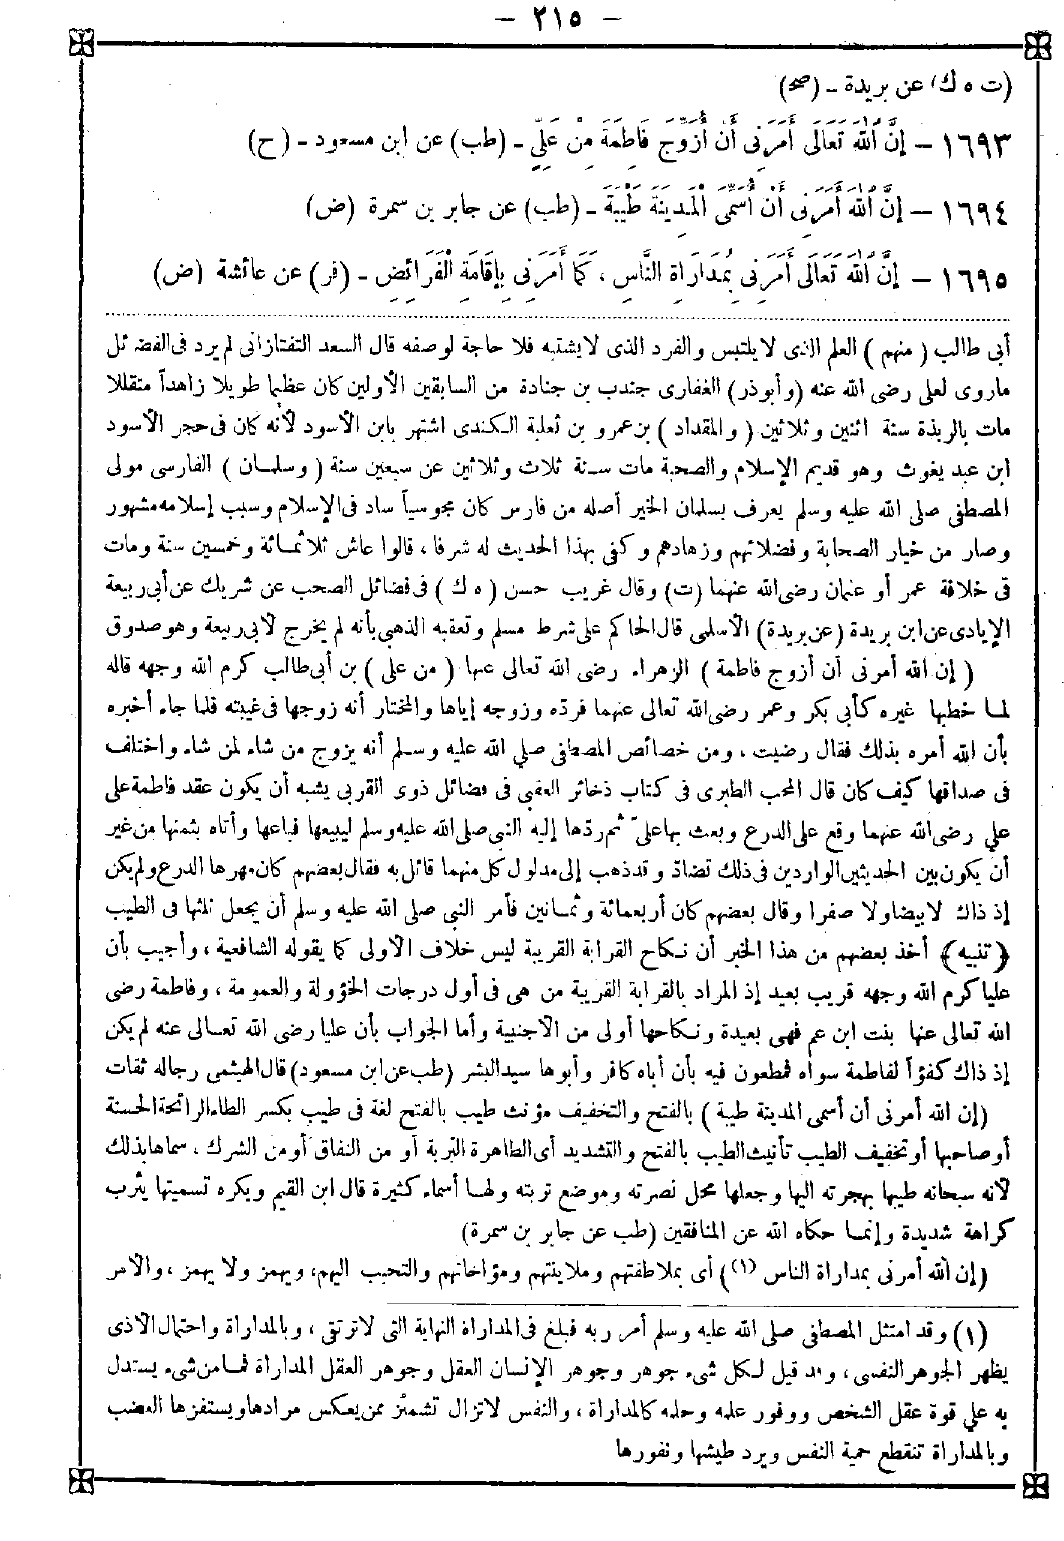 – ٢١٥ –
(ت ه ك) عن بريدة - (صح)
١٦٩٣ – إِنَّ اللهَ تَعَالَى أَمَرَنِى أَنْ أُزَوِّجَ فَاطِمَةَ مِنْ عَلِيٍّ - (طب) عن ابن مسعود - (ح)
١٦٩٤ – إِنَّ اللهَ أَمَرَنِى أَنْ أُسَمِّىَ الْمَدِينَةَ طَيْبَةَ - (طب) عن جابر بن سمرة (ض)
١٦٩٥ – إِنَّ اللهَ تَعَالَى أَمَرَنِى بِمُدَارَاةِ النَّاسِ ، كَمَا أَمَرَنِى بِإِقَامَةِ الْفَرَائِضِ - (فر) عن عائشة (ض)
أبى طالب ( منهم ) العلم الذى لا يلتبس والفرد الذى لا يشتبه فلا حاجة لوصفه قال السعد التفتازانى لم يرد فى الفضائل
ماروى لعلى رضى الله عنه (وأبوذر) الغفارى جندب بن جنادة من السابقين الأولين كان عظيما طويلا زاهداً متقللا
مات بالربذة سنة اثنين وثلاثين ( والمقداد ) بن عمرو بن ثعلبة الكندى اشتهر بابن الأسود لأنه كان فى حجر الأسود
ابن عبد يغوث وهو قديم الإسلام والصحبة مات سنة ثلاث وثلاثين عن سبعين سنة ( وسلمان ) الفارسى مولى
المصطفى صلى الله عليه وسلم يعرف بسلمان الخير أصله من فارس كان مجوسياً ساد فى الإسلام وسبب إسلامه مشهور
وصار من خيار الصحابة وفضلائهم وزهادهم وكفى بهذا الحديث له شرفا ، قالوا عاش ثلاثمائة وخمسين سنة ومات
فى خلافة عمر أو عثمان رضى الله عنهما (ت) وقال غريب حسن ( ه ك ) فى فضائل الصحب عن شريك عن أبى ربيعة
الإيادى عن ابن بريدة (عن بريدة) الأسلمى قال الحاكم على شرط مسلم وتعقبه الذهبى بأنه لم يخرج لأبى ربيعة وهو صدوق
( إن الله أمرنى أن أزوج فاطمة ) الزهراء رضى الله تعالى عنها ( من على ) بن أبى طالب كرم الله وجهه قاله
لما خطبها غيره كأبى بكر وعمر رضى الله تعالى عنهما فرده وزوجه إياها والمختار أنه زوجها فى غيبته فلما جاء أخبره
بأن الله أمره بذلك فقال رضيت ، ومن خصائص المصطفى صلى الله عليه وسلم أنه يزوج من شاء لمن شاء واختلف
فى صداقها كيف كان قال المحب الطبرى فى كتاب ذخائر العقبى فى فضائل ذوى القربى يشبه أن يكون عقد فاطمة على
علي رضى الله عنهما وقع على الدرع وبعث بها علىّ ثم ردّها إليه النبى صلى الله عليه وسلم ليبيعها فباعها وأتاه بثمنها من غير
أن يكون بين الحديثين الواردين فى ذلك تضادّ وقد ذهب إلى مدلول كل منهما قائل به فقال بعضهم كان مهرها الدرع ولم يكن
إذ ذاك لابيضا ولا صفرا وقال بعضهم كان أربعمائة وثمانين فأمر النبى صلى الله عليه وسلم أن يجعل ثلثها فى الطيب
﴿ تنبيه ﴾ أخذ بعضهم من هذا الخبر أن نكاح القرابة القريبة ليس خلاف الأولى كما يقوله الشافعية ، وأجيب بأن
عليا كرم الله وجهه قريب بعيد إذ المراد بالقرابة القريبة من هى فى أول درجات الخؤولة والعمومة ، وفاطمة رضى
الله تعالى عنها بنت ابن عم فهى بعيدة ونكاحها أولى من الأجنبية وأما الجواب بأن عليا رضى الله تعالى عنه لم يكن
إذ ذاك كفؤاً لفاطمة سواه فمطعون فيه بأن أباه كافر وأبوها سيد البشر (طب عن ابن مسعود) قال الهيثمى رجاله ثقات
(إن الله أمرنى أن أسمى المدينة طيبة ) بالفتح والتخفيف مؤنث طيب بالفتح لغة فى طيب بكسر الطاء الرائحة الحسنة
أو صاحبها أو تخفيف الطيب تأنيث الطيب بالفتح والتشديد أى الطاهرة التربة أو من النفاق أو من الشرك ، سماها بذلك
لأنه سبحانه طيبها بهجرته اليها وجعلها محل نصرته وموضع تربته ولها أسماء كثيرة قال ابن القيم ويكره تسميتها يثرب
كراهة شديدة وإنما حكاه الله عن المنافقين (طب عن جابر بن سمرة)
(إن الله أمرنى بمداراة الناس (١) ) أى بملاطفتهم وملاينتهم ومؤاخاتهم والتحبب اليهم، ويهمز ولا يهمز ، والأمر
(١) وقد امتثل المصطفى صلى الله عليه وسلم أمر ربه فبلغ فى المداراة النهاية التى لا ترتقى ، وبالمداراة واحتمال الأذى
يظهر الجوهر النفسى ، وقد قيل لكل شىء جوهر وجوهر الإنسان العقل وجوهر العقل المداراة فما من شىء يستدل
به على قوة عقل الشخص ووفور علمه وحلمه كالمداراة ، والنفس لا تزال تشمئز ممن يعكس مرادها ويستفزها الغضب
وبالمداراة تنقطع حمية النفس ويرد طيشها ونفورها